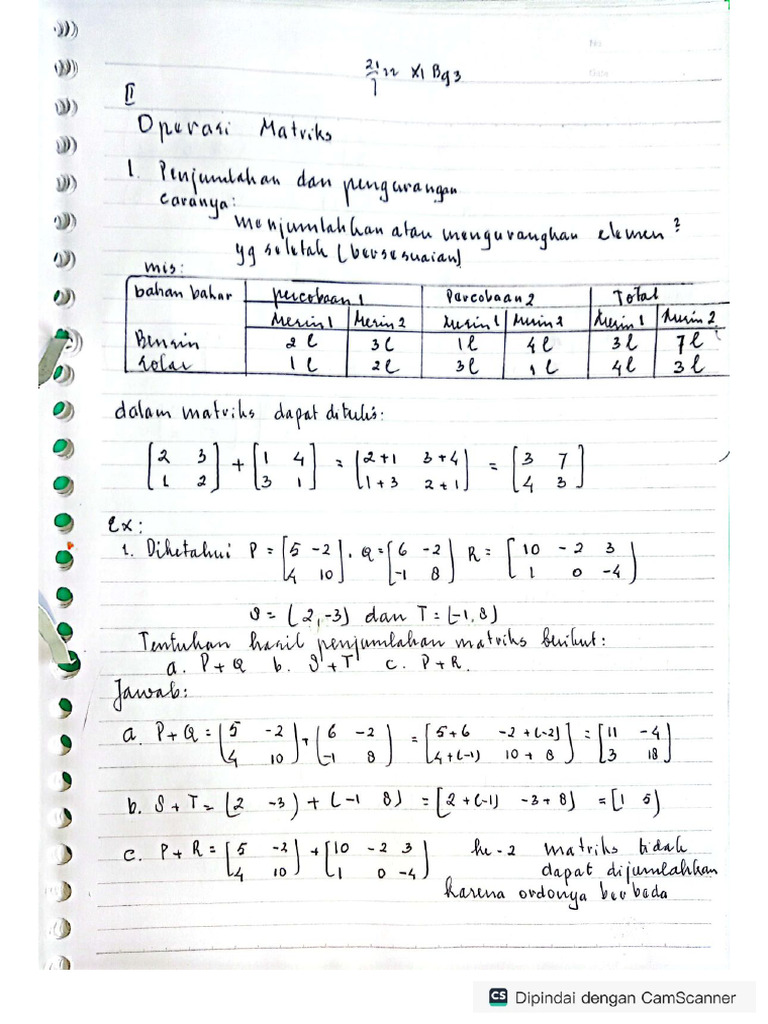 No
Date
21/7 22 XI Bg 3
II
Operasi Matriks
1. Penjumlahan dan pengurangan
caranya:
menjumlahkan atau mengurangkan elemen²
yg seletak (bersesuaian)
mis:
bahan bakar | percobaan 1 | Percobaan 2 | Total
Mesin 1 | Mesin 2 | Mesin 1 | Mesin 2 | Mesin 1 | Mesin 2
Bensin | 2 l | 3 l | 1 l | 4 l | 3 l | 7 l
Solar | 1 l | 2 l | 3 l | 1 l | 4 l | 3 l
dalam matriks dapat ditulis:
[2 3; 1 2] + [1 4; 3 1] = [2+1 3+4; 1+3 2+1] = [3 7; 4 3]
Ex:
1. Diketahui P = [5 -2; 4 10], Q = [6 -2; -1 8] R = [10 -2 3; 1 0 -4]
S = (2, -3) dan T = (-1, 8)
Tentukan hasil penjumlahan matriks berikut:
a. P+Q b. S+T c. P+R.
Jawab:
a. P+Q = [5 -2; 4 10] + [6 -2; -1 8] = [5+6 -2+(-2); 4+(-1) 10+8] = [11 -4; 3 18]
b. S+T = (2 -3) + (-1 8) = [2+(-1) -3+8] = [1 5]
c. P+R = [5 -2; 4 10] + [10 -2 3; 1 0 -4] ke-2 matriks tidak
dapat dijumlahkan
karena ordonya berbeda
CS Dipindai dengan CamScanner